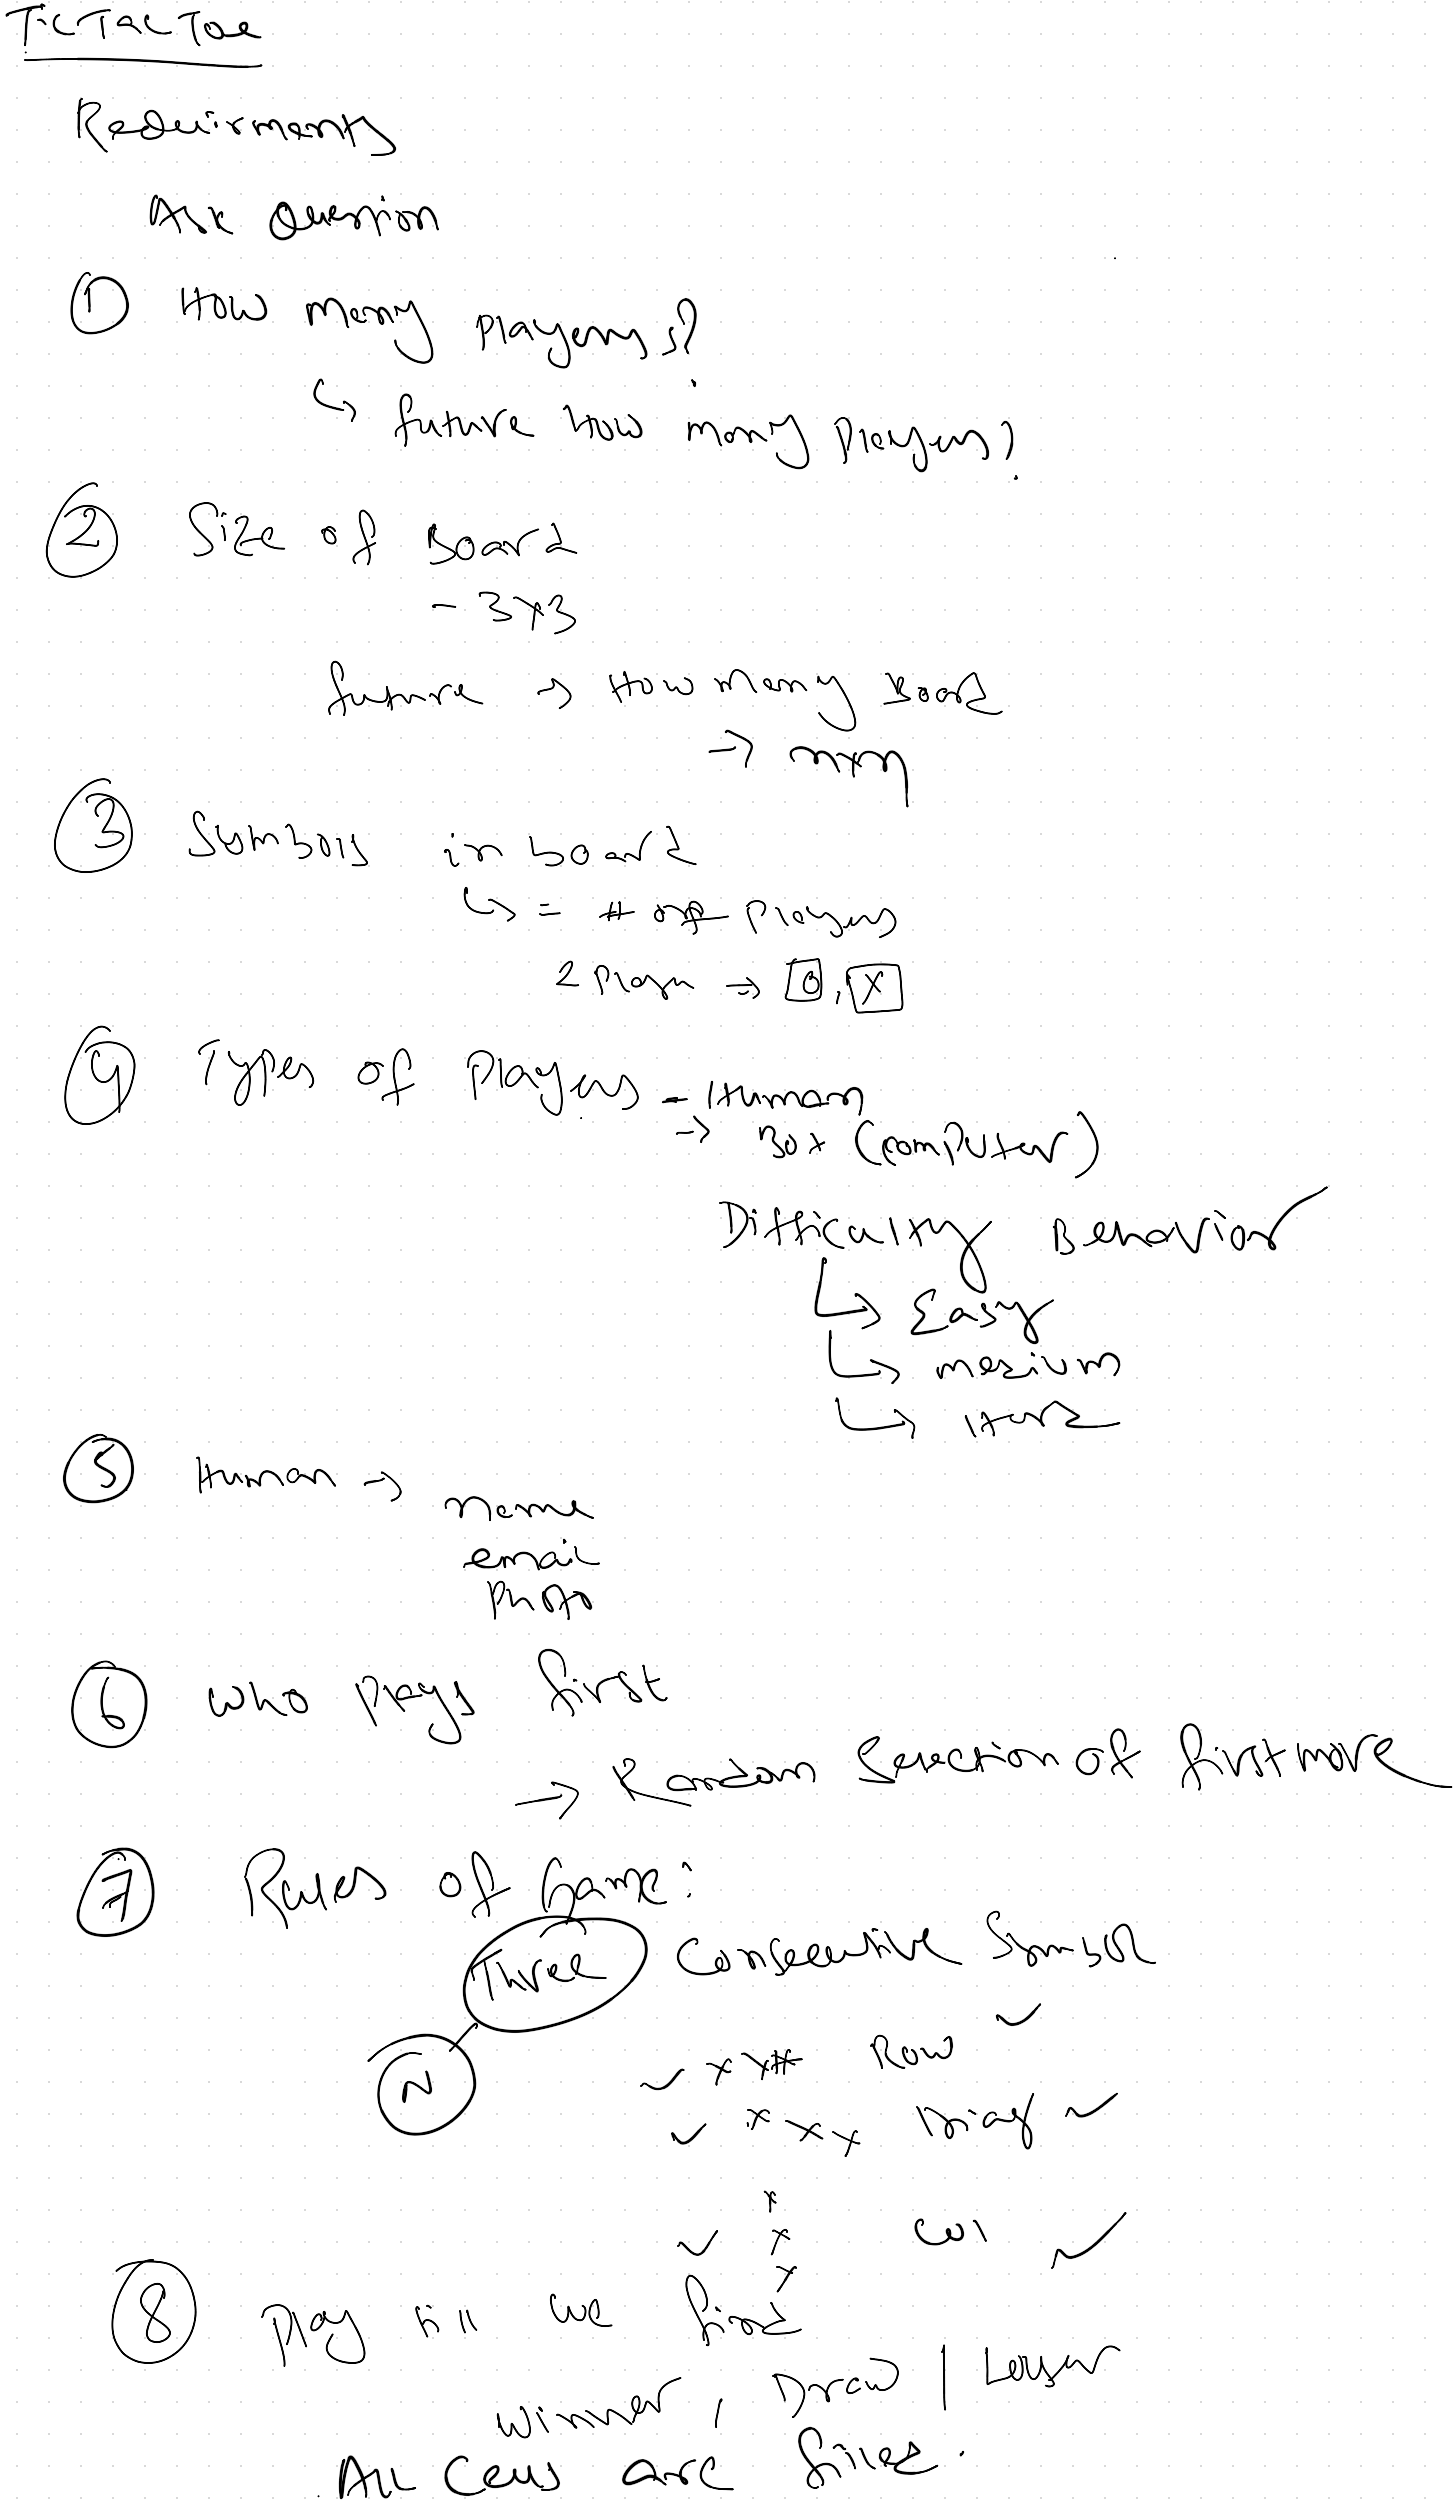 TicTacToe
Requirments
Ask Question
① How many players?
↳ future How many Players?
② Size of Board
- 3x3
future → How many Board
→ nxn
③ Symbols in board
↳ = # of Players
2 Playr → O, X
④ Types of Players - Human
→ Bot (computer)
Difficalty Behavior
↳ Easy
↳ medium
↳ Hard
⑤ Human →
name
email
Photo
⑥ who plays first
→ Random Selection of first move
⑦ Rules of Game:
Three Consecutive Symbol
N
✓ x x x Row ✓
✓ x x x Diag ✓
x
✓ x Col ✓
x
⑧ Play till we find
winner, Draw / Looser
All Cells are filled.